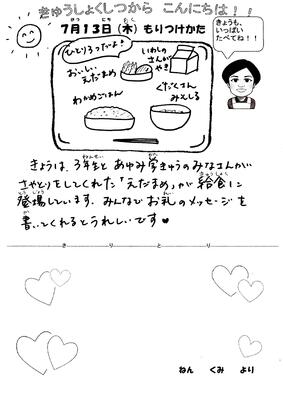 きゅうしょくしつから こんにちは!!
7月13日(木)もりつけかた
がつ にち もく
きょうも、
いっぱい
たべてね!!
ひとり3つだよ!
おいしい
えだまめ
いわしの
さんが
やき
わかめごはん
ぐだくさん
みそしる
きょうは、3年生と あゆみ学きゅうのみなさんが
さやとりをしてくれた「えだまめ」が給食に
登場しています。みんなでお礼のメッセージを
書いてくれるとうれしいです♥
きりとり
ねん くみ より